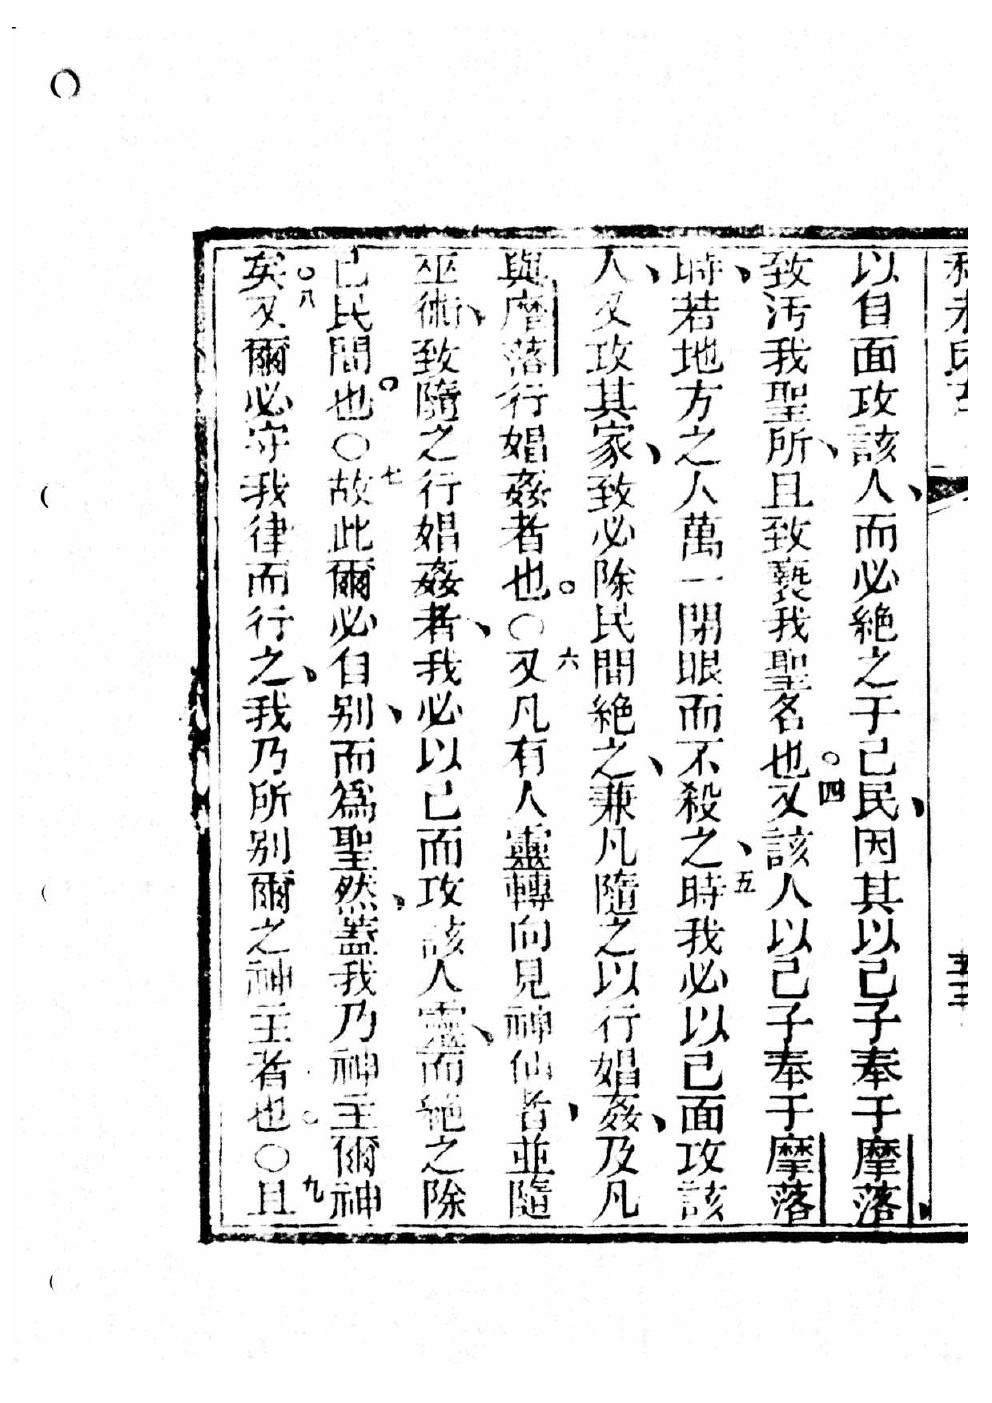 以自面攻該人、而必絶之于己民、因其以己子奉于摩落、
致污我聖所、且致褻我聖名也。四又該人以己子奉于摩落
時、若地方之人萬一閉眼而不殺之、五時我必以己面攻該
人、又攻其家、致必除民間絶之、兼凡隨之以行娼姦、及凡
與摩落行娼姦者也。○六又凡有人靈轉向見神仙者、並隨
巫術、致隨之行娼姦者、我必以己面攻該人靈、而絶之除
己民間也。○七故此爾必自别、而爲聖然、蓋我乃神主爾神
矣。八又爾必守我律而行之、我乃所别爾之神主者也。○九且